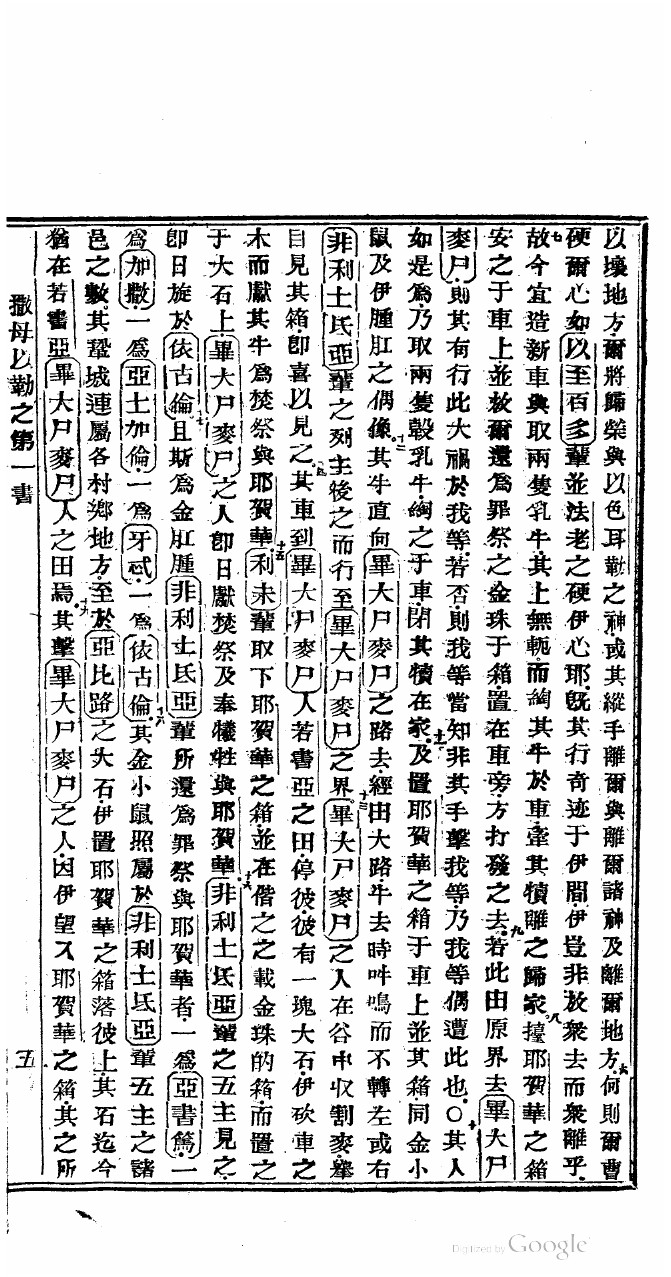 以壞地方爾將歸榮與以色耳勒之神或其縱手離爾與離爾諸神及離爾地方六何則爾曹
硬爾心如以至百多輩並法老之硬伊心耶既其行奇迹于伊間伊豈非放衆去而衆離乎
七故今宜造新車與取兩隻乳牛其上無軛而綯其牛於車牽其犢離之歸家八擡耶賀華之箱
安之于車上並放爾還爲罪祭之金珠于箱置在車旁方打發之去九若此由原界去畢大尸
麥尸則其有行此大禍於我等若否則我等當知非其手擊我等乃我等偶遭此也○十其人
如是爲乃取兩隻穀乳牛綯之于車閉其犢在家十一及置耶賀華之箱于車上並其箱同金小
鼠及伊腫肛之偶像十二其牛直向畢大尸麥尸之路去經由大路牛去時吽鳴而不轉左或右
非利士氐亞輩之列主後之而行至畢大尸麥尸之界十三畢大尸麥尸之人在谷中收割麥舉
目見其箱即喜以見之十四其車到畢大尸麥尸人若書亞之田停彼彼有一塊大石伊砍車之
木而獻其牛爲焚祭與耶賀華十五利未輩取下耶賀華之箱並在偕之之載金珠的箱而置之
于大石上畢大尸麥尸之人即日獻焚祭及奉犧牲與耶賀華十六非利士氐亞輩之五主見之
即日旋於依古倫十七且斯爲金肛腫非利士氐亞輩所還爲罪祭與耶賀華者一爲亞書篤一
爲加撒一爲亞士加倫一爲牙忒一爲依古倫十八其金小鼠照屬於非利士氐亞輩五主之諸
邑之數其鞏城連屬各村鄉地方至於亞比路之大石伊置耶賀華之箱落彼上其石迄今
猶在若書亞畢大尸麥尸人之田焉十九其擊畢大尸麥尸之人因伊望入耶賀華之箱其之所
撒母以勒之第一書
五
Digitized by Google